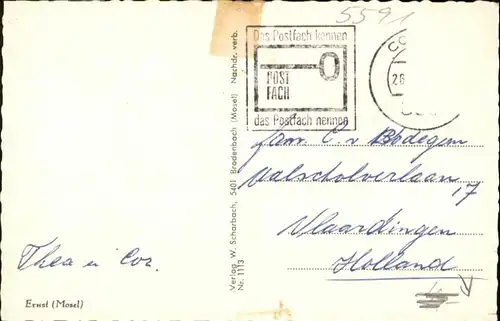 5591
Das Postfach kennen
POST
FACH
das Postfach nennen
CO
26
Fam. C. v Bodegem
17
Vlaardingen
Holland
Thea u Cor.
Ernst (Mosel)
Verlag W. Scharbach, 5401 Brodenbach (Mosel) Nachdr. verb.
Nr. 1113